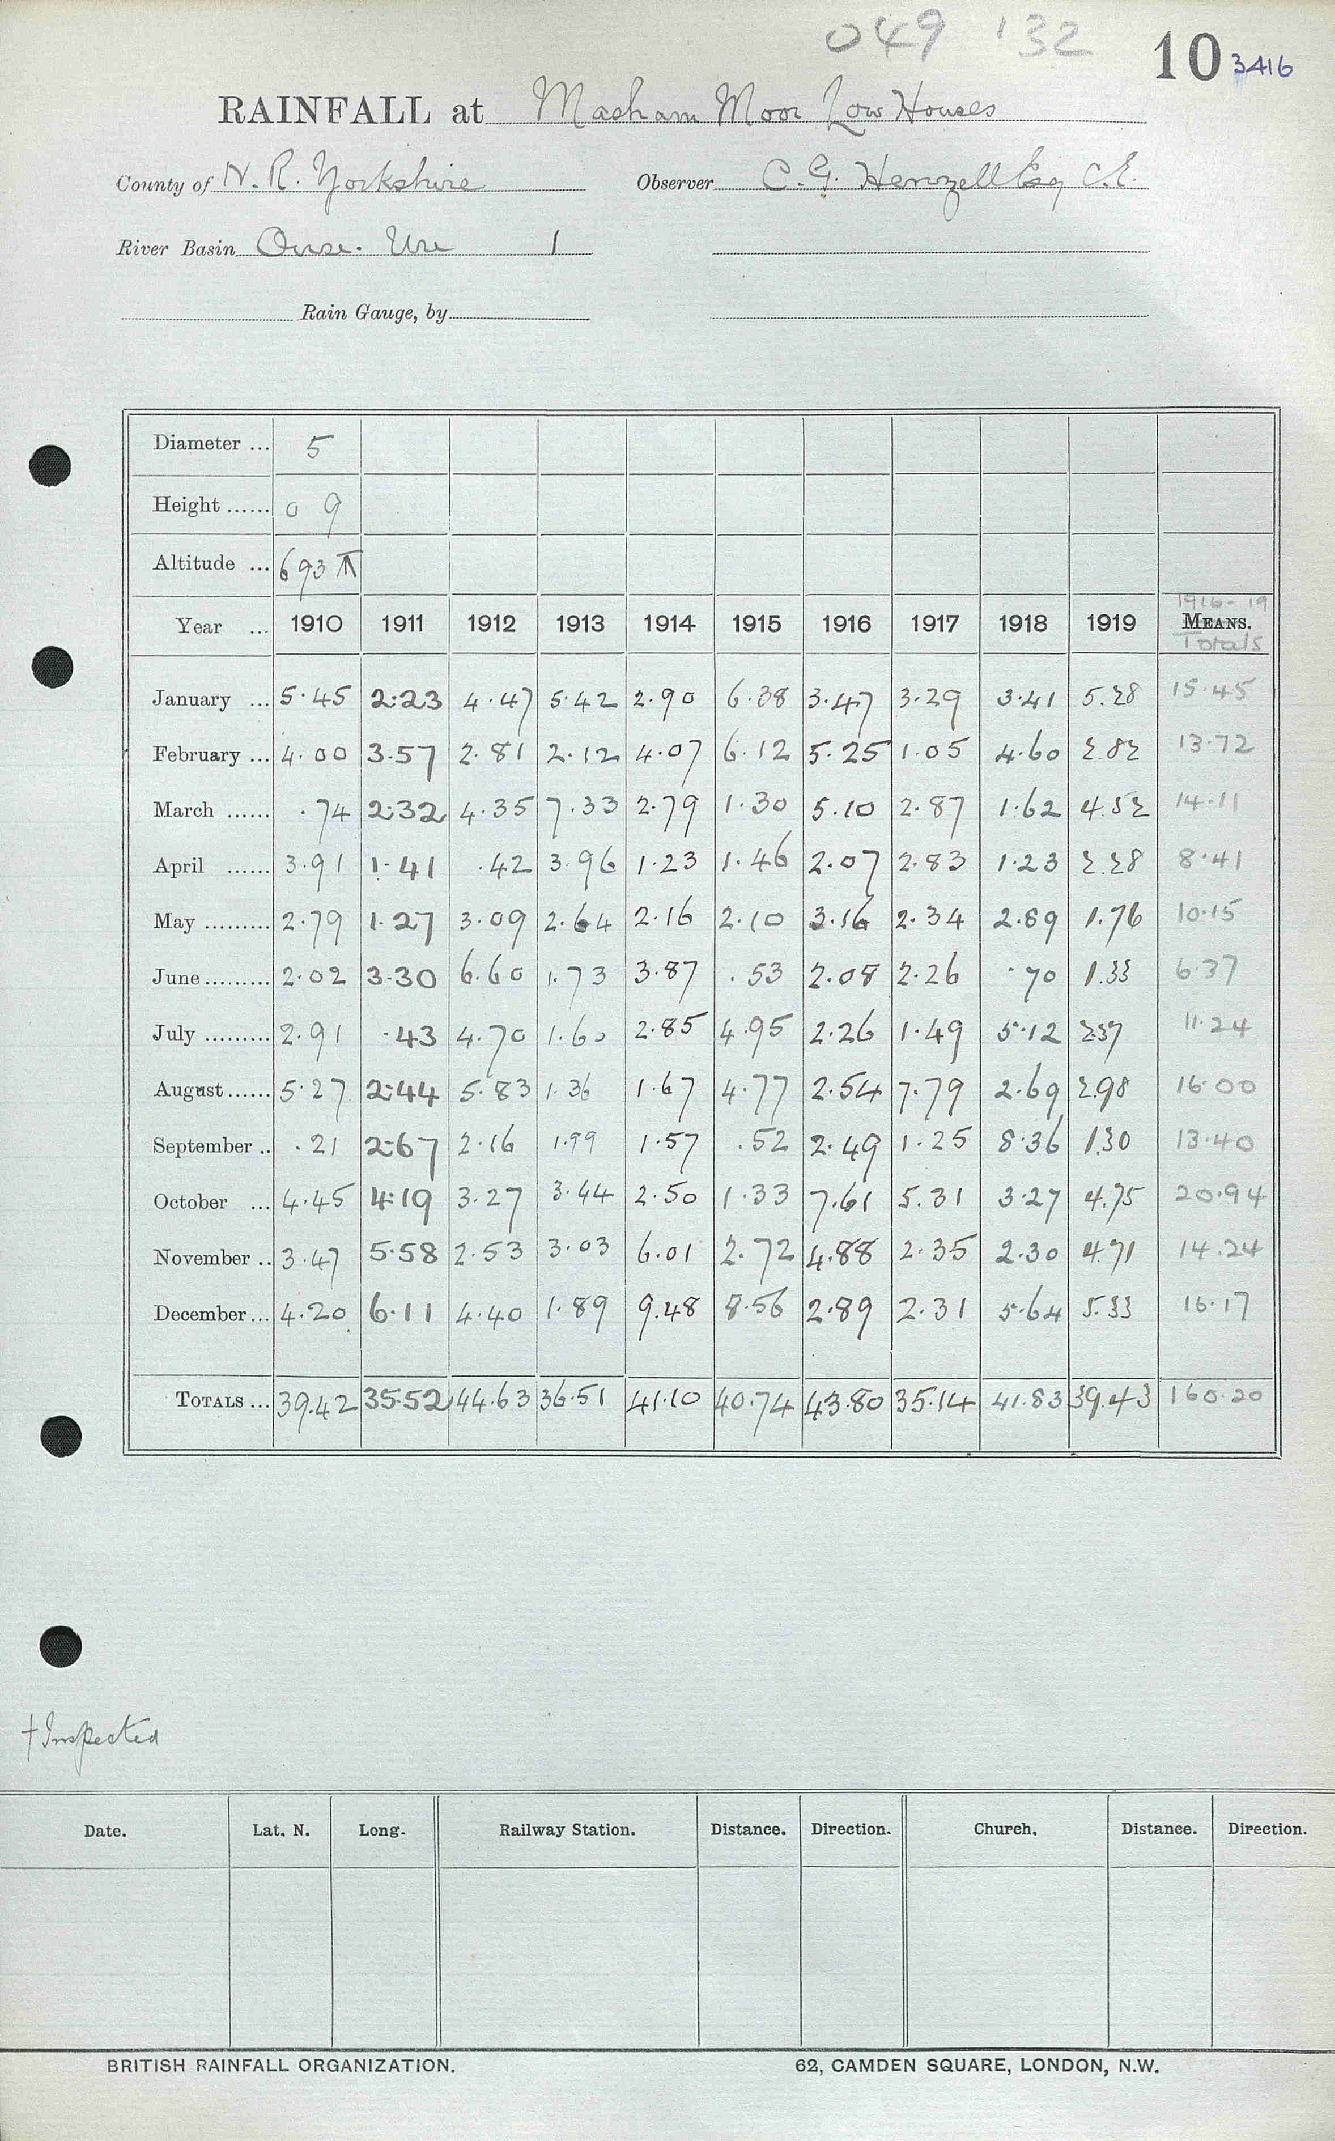 049 132
10 3416
RAINFALL at Masham Moor Low Houses
County of N. R. Yorkshire Observer C. G. Henzell Esq C.E.
River Basin Ouse. Ure 1
Rain Gauge, by
Diameter ... 5
Height ...... 0 9
Altitude ... 693
1916-19
Year ... 1910 1911 1912 1913 1914 1915 1916 1917 1918 1919 MEANS.
Totals
January ... 5.45 2.23 4.47 5.42 2.90 6.38 3.47 3.29 3.41 5.28 15.45
February ... 4.00 3.57 2.81 2.12 4.07 6.12 5.25 1.05 4.60 2.82 13.72
March ...... .74 2.32 4.35 7.33 2.79 1.30 5.10 2.87 1.62 4.52 14.11
April ...... 3.91 1.41 .42 3.96 1.23 1.46 2.07 2.83 1.23 2.28 8.41
May ......... 2.79 1.27 3.09 2.64 2.16 2.10 3.16 2.34 2.89 1.76 10.15
June ......... 2.02 3.30 6.60 1.73 3.87 .53 2.08 2.26 .70 1.33 6.37
July ......... 2.91 .43 4.70 1.60 2.85 4.95 2.26 1.49 5.12 2.37 11.24
August ...... 5.27 2.44 5.83 1.36 1.67 4.77 2.54 7.79 2.69 2.98 16.00
September .. .21 2.67 2.16 1.99 1.57 .52 2.49 1.25 8.36 1.30 13.40
October ... 4.45 4.19 3.27 3.44 2.50 1.33 7.61 5.31 3.27 4.75 20.94
November .. 3.47 5.58 2.53 3.03 6.01 2.72 4.88 2.35 2.30 4.71 14.24
December ... 4.20 6.11 4.40 1.89 9.48 8.56 2.89 2.31 5.64 5.33 16.17
TOTALS ... 39.42 35.52 44.63 36.51 41.10 40.74 43.80 35.14 41.83 39.43 160.20
† Inspected
Date. Lat. N. Long. Railway Station. Distance. Direction. Church. Distance. Direction.
BRITISH RAINFALL ORGANIZATION. 62, CAMDEN SQUARE, LONDON, N.W.